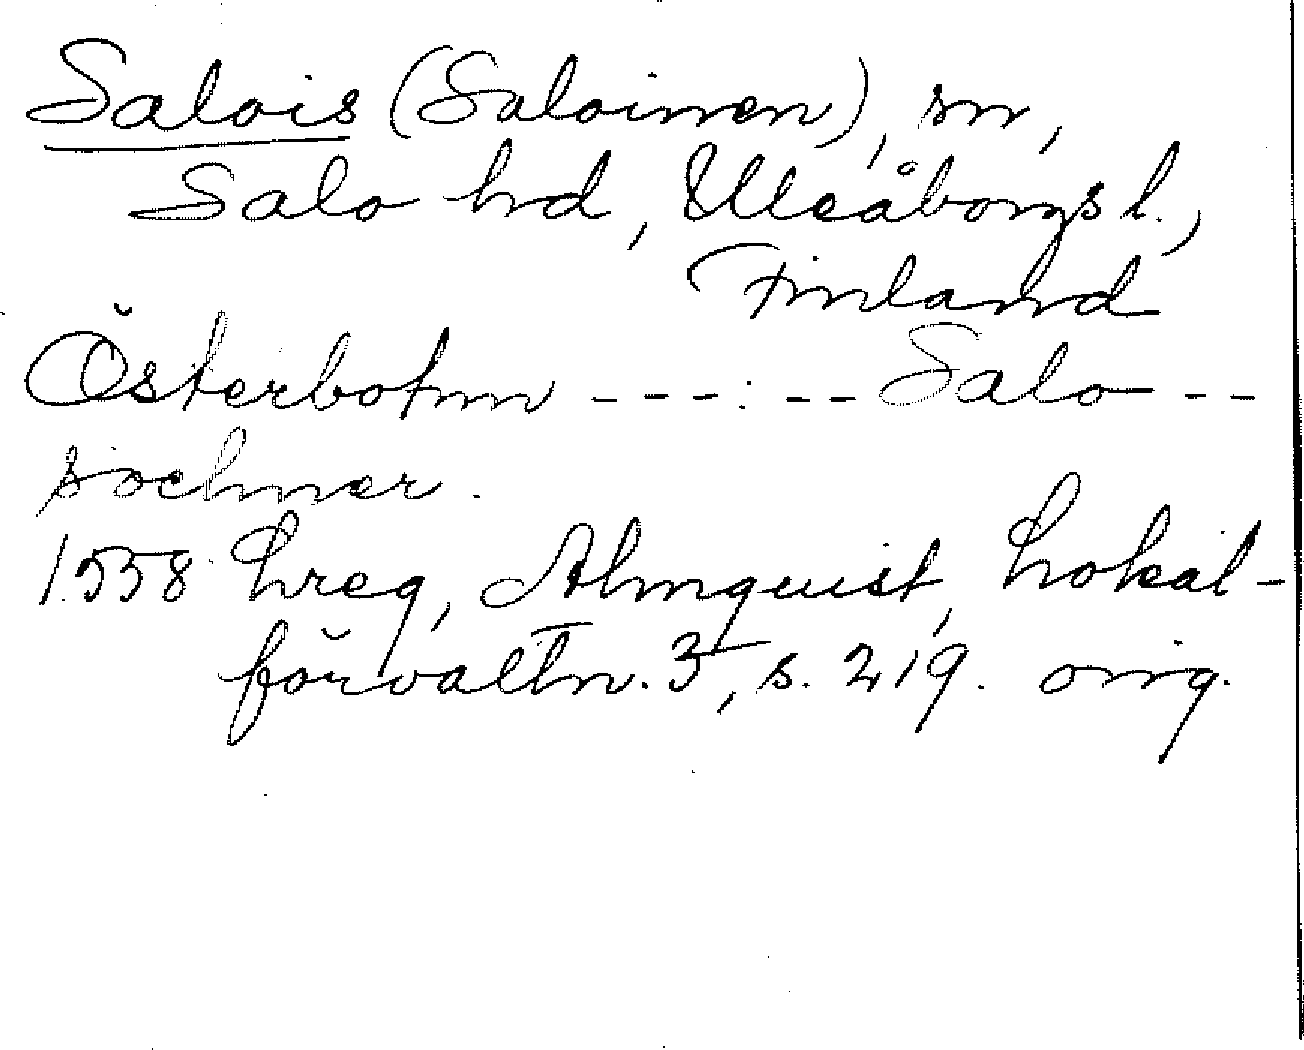 Salois (Saloinen), sn,
Salo hd, Uleåborgs l.,
Finland
Österbotnn ---:-- Salo --
sochner.
1558 hreg, Almquist, Lokal-
förvaltn. 3, s. 219. orig.